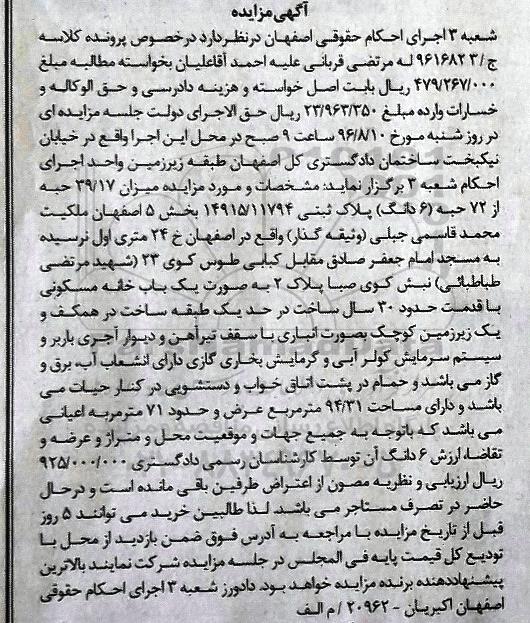 آگهی مزایده
شعبه ۳ اجرای احکام حقوقی اصفهان درنظر دارد درخصوص پرونده کلاسه
ج/۹۶۱۶۸۲ ۳ له مرتضی قربانی علیه احمد آقاعلیان بخواسته مطالبه مبلغ
۴۷۹/۲۶۷/۰۰۰ ریال بابت اصل خواسته و هزینه دادرسی و حق الوکاله و
خسارات وارده مبلغ ۲۳/۹۶۳/۳۵۰ ریال حق الاجرای دولت جلسه مزایده ای
در روز شنبه مورخ ۹۶/۸/۱۰ ساعت ۹ صبح در محل این اجرا واقع در خیابان
نیکبخت ساختمان دادگستری کل اصفهان طبقه زیرزمین واحد اجرای
احکام شعبه ۳ برگزار نماید: مشخصات و مورد مزایده میزان ۳۹/۱۷ حبه
از ۷۲ حبه (۶ دانگ) پلاک ثبتی ۱۴۹۱۵/۱۱۷۹۴ بخش ۵ اصفهان ملکیت
محمد قاسمی جبلی (وثیقه گذار) واقع در اصفهان خ ۲۴ متری اول نرسیده
به مسجد امام جعفر صادق مقابل کبابی طوس کوی ۲۳ (شهید مرتضی
طباطبائی) نبش کوی صبا پلاک ۲ به صورت یک باب خانه مسکونی
با قدمت حدود ۳۰ سال ساخت در حد یک طبقه ساخت در همکف و
یک زیرزمین کوچک بصورت انباری با سقف تیرآهن و دیوار آجری باربر و
سیستم سرمایش کولر آبی و گرمایش بخاری گازی دارای انشعاب آب، برق و
گاز می باشد و حمام در پشت اتاق خواب و دستشویی در کنار حیات می
باشد و دارای مساحت ۹۴/۳۱ مترمربع عرض و حدود ۷۱ مترمربه اعیانی
می باشد که باتوجه به جمیع جهات و موقعیت محل و متراژ و عرضه و
تقاضا، ارزش ۶ دانگ آن توسط کارشناسان رسمی دادگستری ۹۲۵/۰۰۰/۰۰۰
ریال ارزیابی و نظریه مصون از اعتراض طرفین باقی مانده است و درحال
حاضر در تصرف مستاجر می باشد. لذا طالبین خرید می توانند ۵ روز
قبل از تاریخ مزایده با مراجعه به آدرس فوق ضمن بازدید از محل با
تودیع کل قیمت پایه فی المجلس در جلسه مزایده شرکت نمایند بالاترین
پیشنهاددهنده برنده مزایده خواهد بود. دادورز شعبه ۳ اجرای احکام حقوقی
اصفهان اکبریان - ۲۰۹۶۲ / م الف